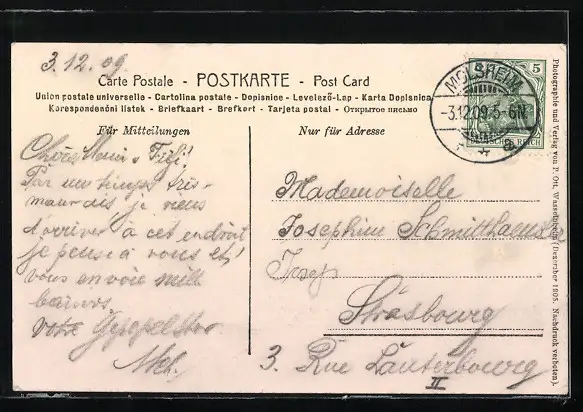 3.12.09.
Carte Postale - POSTKARTE - Post Card
Union postale universelle - Cartolina postale - Dopisnice - Levelező-Lap - Karta Dopisnica
Korespondenční lístek - Briefkaart - Brefkort - Tarjeta postal - Открытое письмо
Für Mitteilungen
Chère
Par un temps très
mauvais je viens
d'arriver à cet endroit
je pense à vous et
vous envoie mille
baisers
votre
Nur für Adresse
Mademoiselle
Josephine Schmitthaeusler
Josep
Strasbourg
3. Rue Lauterbourg
II
MOLSHEIM
-3.12.09.5-6N.
a
5
DEUTSCHES REICH
Photographie und Verlag von P. Ott, Wasselnheim (Dezember 1905. Nachdruck verboten).